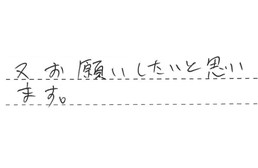 又お願いしたいと思い
ます。